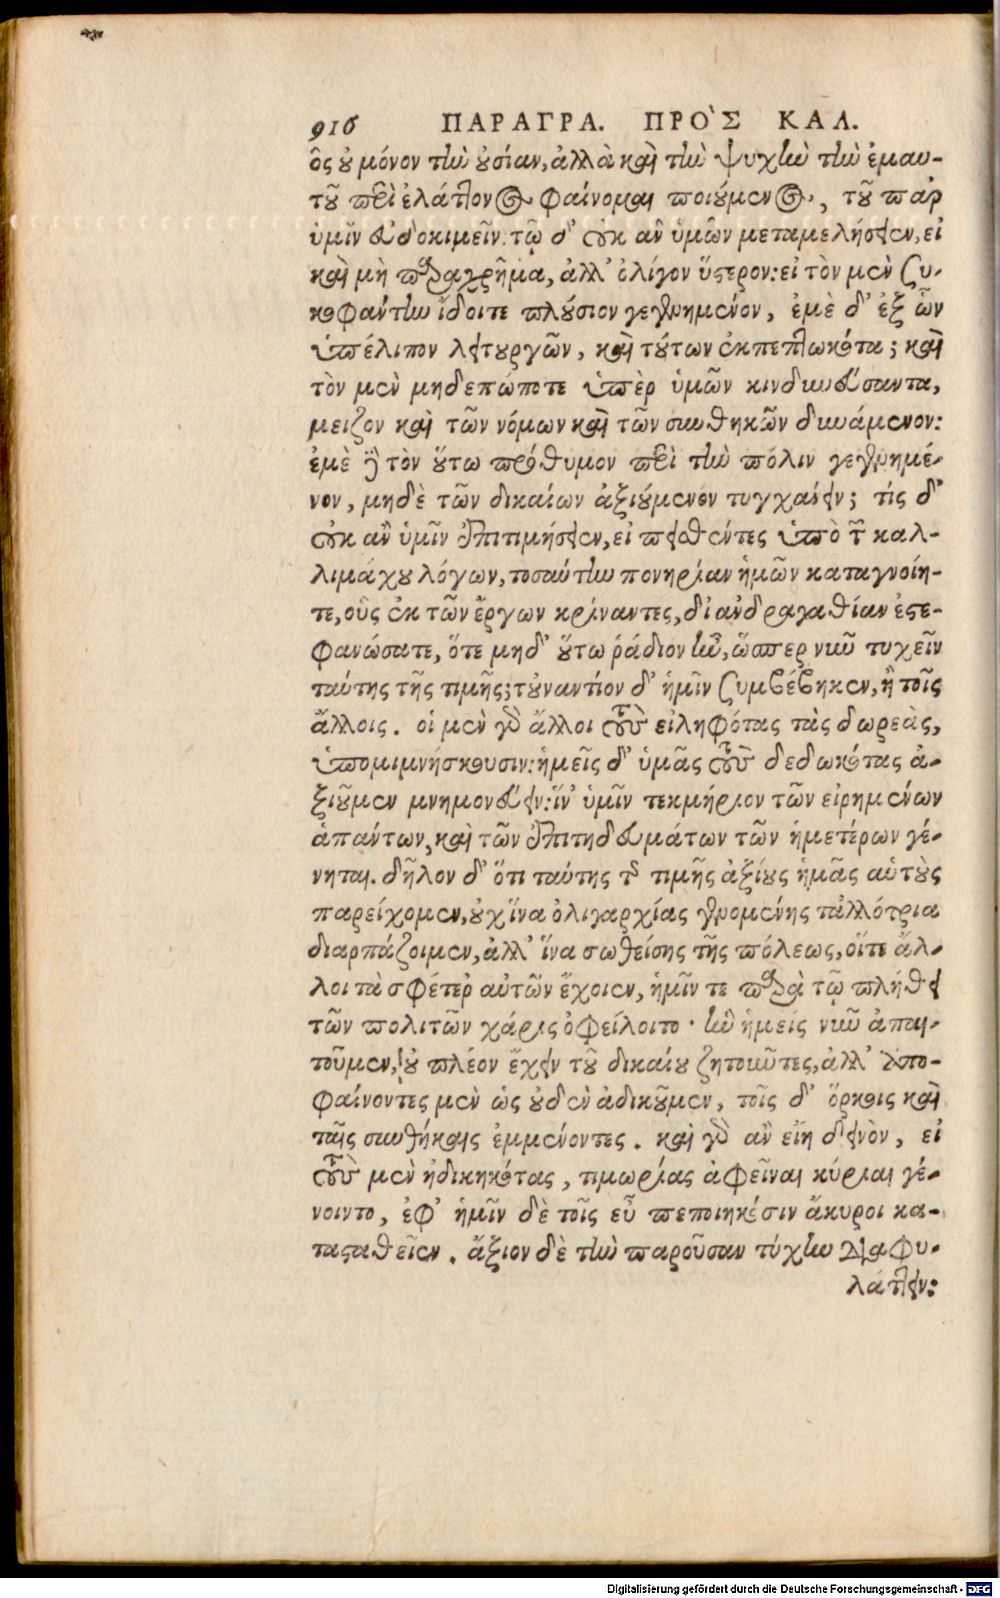 916 ΠΑΡΑΓΡΑ. ΠΡΟ`Σ ΚΑΛ.
ὃς οὐ μόνον τὴν οὐσίαν, ἀλλὰ καὶ τὴν ψυχὴν τὴν ἐμαυ-
τοῦ περὶ ἐλάττονος φαίνομαι ποιούμενος, τοῦ παρ'
ὑμῖν εὐδοκιμεῖν. τῷ δ' οὐκ ἂν ὑμῶν μεταμελήσειεν, εἰ
καὶ μὴ παραχρῆμα, ἀλλ' ὀλίγον ὕστερον: εἰ τὸν μὲν συ-
κοφάντην ἴδοιτε πλούσιον γεγενημένον, ἐμὲ δ' ἐξ ὧν
ὑπέλιπον λειτουργῶν, καὶ τούτων ἐκπεπτωκότα; καὶ
τὸν μὲν μηδεπώποτε ὑπὲρ ὑμῶν κινδυνεύσαντα,
μεῖζον καὶ τῶν νόμων καὶ τῶν συνθηκῶν δυνάμενον:
ἐμὲ δὲ τὸν οὕτω πρόθυμον περὶ τὴν πόλιν γεγενημέ-
νον, μηδὲ τῶν δικαίων ἀξιούμενον τυγχάνειν; τίς δ'
οὐκ ἂν ὑμῖν ἐπιτιμήσειεν, εἰ πεισθέντες ὑπὸ τῶν καλ-
λιμάχου λόγων, τοσαύτην πονηρίαν ἡμῶν καταγνοίη-
τε, οὓς ἐκ τῶν ἔργων κρίναντες, δι' ἀνδραγαθίαν ἐστε-
φανώσατε, ὅτε μηδ' οὕτω ῥάδιον ἦν, ὥσπερ νῦν τυχεῖν
ταύτης τῆς τιμῆς; τοὐναντίον δ' ἡμῖν συμβέβηκεν, ἢ τοῖς
ἄλλοις. οἱ μὲν γὰρ ἄλλοι τοὺς εἰληφότας τὰς δωρεὰς,
ὑπομιμνήσκουσιν: ἡμεῖς δ' ὑμᾶς τοὺς δεδωκότας ἀ-
ξιοῦμεν μνημονεύειν: ἵν' ὑμῖν τεκμήριον τῶν εἰρημένων
ἁπάντων, καὶ τῶν ἐπιτηδευμάτων τῶν ἡμετέρων γέ-
νηται. δῆλον δ' ὅτι ταύτης τῆς τιμῆς ἀξίους ἡμᾶς αὐτοὺς
παρείχομεν, οὐχ ἵνα ὀλιγαρχίας γενομένης τἀλλότρια
διαρπάζοιμεν, ἀλλ' ἵνα σωθείσης τῆς πόλεως, οἵτε ἄλ-
λοι τὰ σφέτερ' αὐτῶν ἔχοιεν, ἡμῖν τε παρὰ τῷ πλήθει
τῶν πολιτῶν χάρις ὀφείλοιτο· ἣν ἡμεῖς νῦν ἀπαι-
τοῦμεν, οὐ πλέον ἔχειν τοῦ δικαίου ζητοῦντες, ἀλλ' ἀπο-
φαίνοντες μὲν ὡς οὐδὲν ἀδικοῦμεν, τοῖς δ' ὅρκοις καὶ
ταῖς συνθήκαις ἐμμένοντες. καὶ γὰρ ἂν εἴη δεινὸν, εἰ
τοὺς μὲν ἠδικηκότας, τιμωρίας ἀφεῖναι κύριαι γέ-
νοιντο, ἐφ' ἡμῖν δὲ τοῖς εὖ πεποιηκόσιν ἄκυροι κα-
τασταθεῖεν. ἄξιον δὲ τὴν παροῦσαν τύχην διαφυ-
λάττειν:
Digitalisierung gefördert durch die Deutsche Forschungsgemeinschaft - DFG